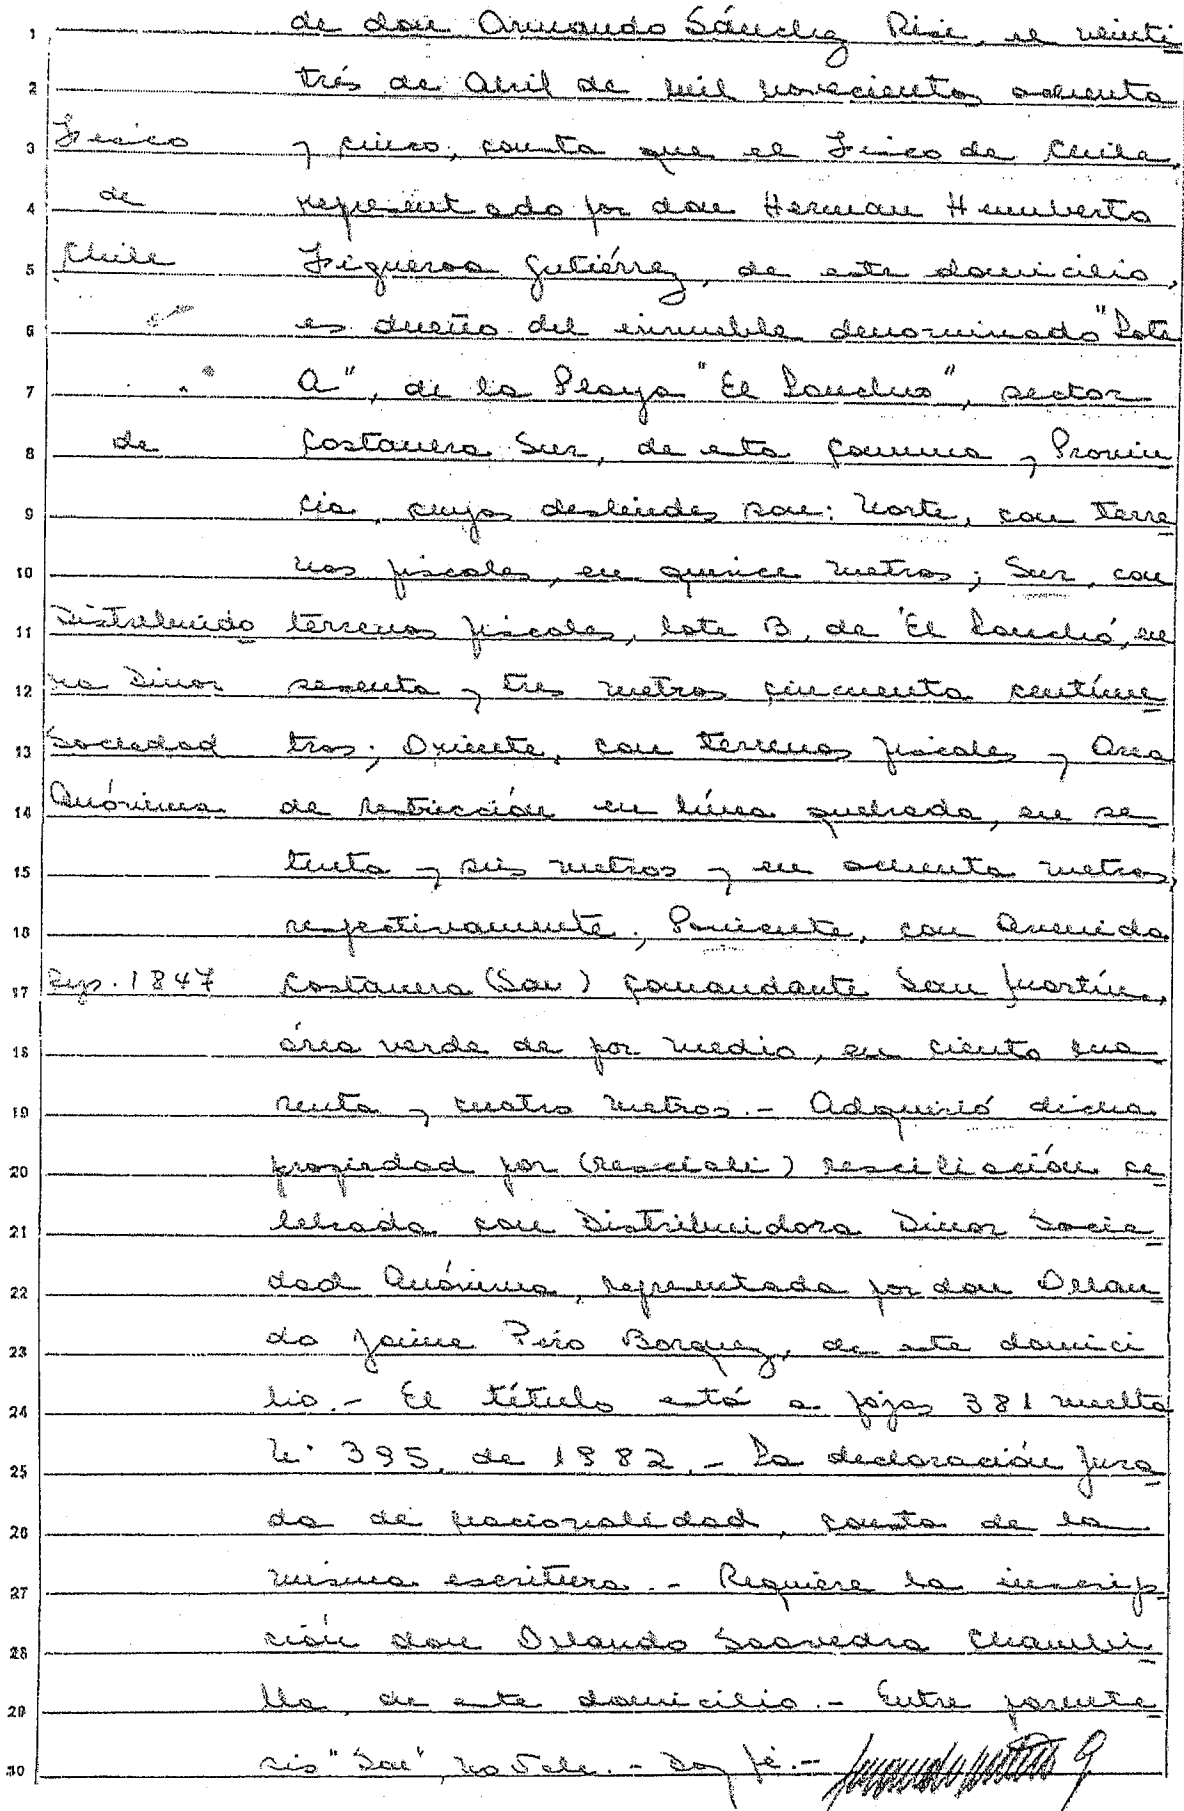 1 de don Armando Sánchez Risi, el veinti
2 trés de Abril de mil novecientos ochenta
3 Fisco y cinco, consta que el Fisco de Chile,
4 de representado por don Herman Humberto
5 Chile Figueroa Gutiérrez, de este domicilio,
6 es dueño del inmueble denominado "Lote
7 A", de la Playa "El Laucho", sector
8 de Costanera Sur, de esta Comuna y Provin
9 cia, cuyos deslindes son: Norte, con terre
10 nos fiscales, en quince metros; Sur, con
11 Distribuido terrenos fiscales, lote B, de "El Laucho", en
12 ra Dinor sesenta y tres metros cincuenta centíme
13 Sociedad tros; Oriente, con terrenos fiscales y Area
14 Anónima de restricción en línea quebrada, en se
15 tenta y seis metros y en ochenta metros,
16 respectivamente; Poniente, con Avenida
17 Rep. 1847 Costanera (San) Comandante San Martín,
18 área verde de por medio, en ciento cua
19 renta y cuatro metros.- Adquirió dicha
20 propiedad por (resciali) resciliación ce
21 lebrada con Distribuidora Dinor Socie
22 dad Anónima, representada por don Orlan
23 do Jaime Piro Borquez, de este domici
24 lio.- El título está a fojas 381 vuelta
25 N° 395, de 1982.- La declaración jura
26 da de nacionalidad, consta de la
27 misma escritura.- Requiere la inscrip
28 ción don Orlando Saavedra Chambi
29 lla, de este domicilio.- Entre parénte
30 sis "San", no vale.- Doy fé.-